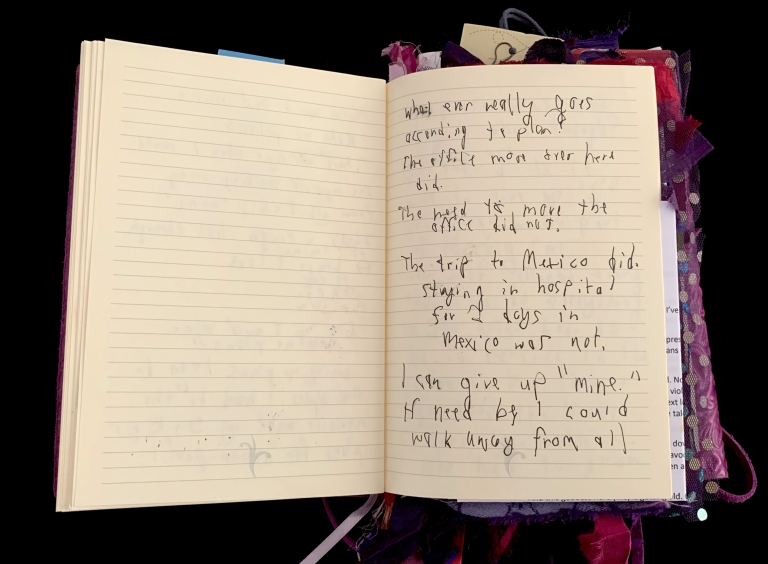 what ever really goes
according to plan?
The office move over here
did.
The need to move the
office did not.
The trip to Mexico did.
Staying in hospital
for 2 days in
Mexico was not.
I can give up "mine."
If need be I could
walk away from all
I've
pres
ans
l. No
viol
ext l
r tal
dov
avo
en a